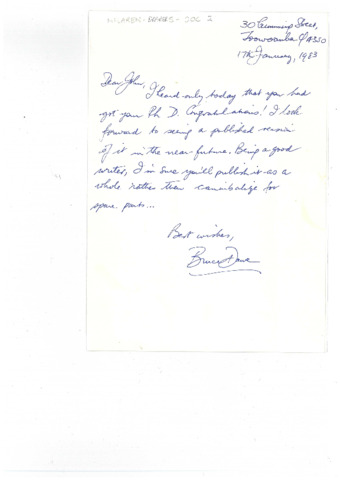 30 Cumming Street,
Toowoomba Q 4350
17th January, 1983
Dear John,
I heard only today that you had
got your Ph. D. Congratulations! I look
forward to seeing a published version
of it in the near future. Being a good
writer, I'm sure you'll publish it as a
whole rather than cannibalize for
spare parts...
Best wishes,
Bruce Dawe